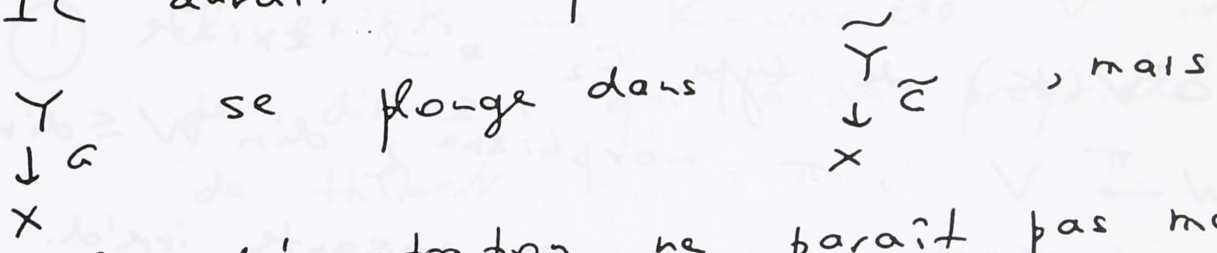 Y ↓ G X se plonge dans Ỹ ↓ G̃ X , mais
ne paraît pas